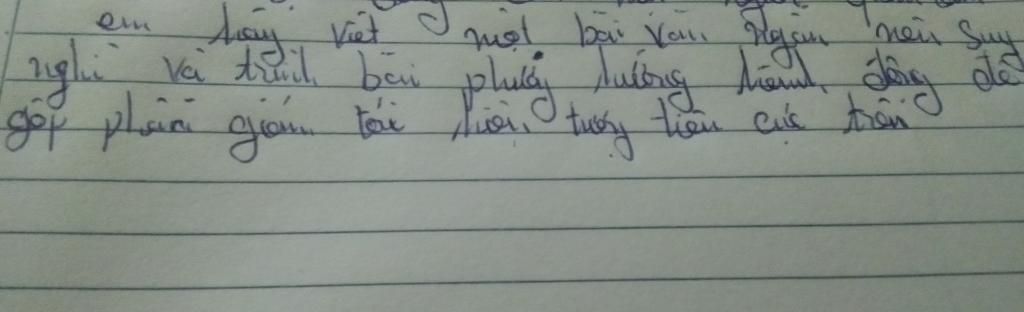 em hãy viết một bài văn ngắn nêu suy
nghĩ và trình bài phương hướng hành động để
góp phần giảm tải hiện tượng tiêu cực trên